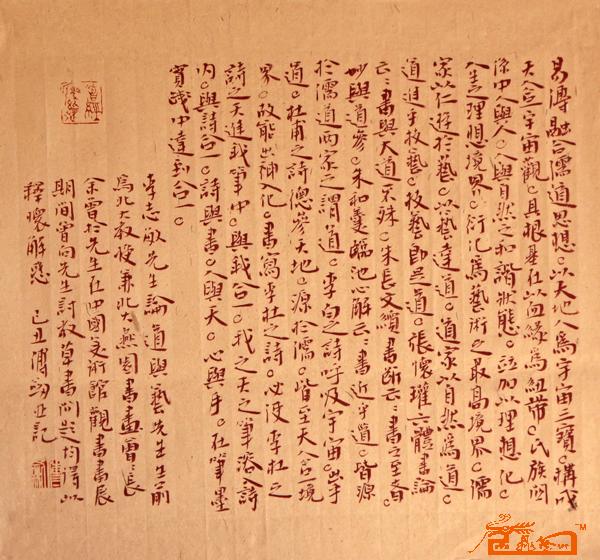 易溥融合儒道思想。以天地人为宇宙三寶。構成
天人合一宇宙觀。其根基在以血緣為紐帶。氏族関
係中人與人。人與自然之和諧狀態。並加以理想化。
人生之理想境界。衍化為藝術之最高境界。儒
家以仁遊於藝。以藝達道。道家以自然為道。
道進乎技藝。技藝即是道。張懷瓘六體書論
云：書與大道不殊。朱長文續書断云：書之至者。
妙與道參。朱和羹臨池心解云：書近乎道。皆源
於儒道両家之謂道。李白之詩呼吸宇宙。出乎
道。杜甫之詩德參天地。源於儒。皆至天人合一境
界。故能出神入化。書寫李杜之詩。必汲李杜之
詩之天進我筆中。與我合一。我之天之筆溶入詩
内。與詩合一。詩與書。人與天。心與手。在筆墨
實踐中達到合一。
李志敏先生論道與藝先生生前
為北大教授兼北大燕園書畫會會長
余曾於先生在中國美術館觀書畫展
期間曾向先生討教草書問題均得以
釋懷解惑 己丑溥記